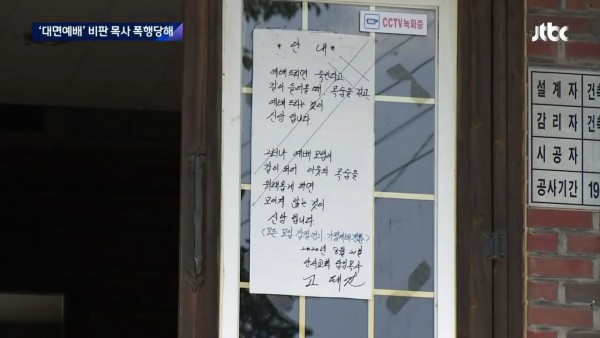 '대면예배' 비판 목사 폭행당해
jtbc
CCTV녹화중
* 안 내 *
예배 드리면 죽인다고
칼이 들어올 때 목숨을 걸고
예배 드리는 것이
신앙 입니다.
그러나 예배 모임이
칼이 되어 이웃의 목숨을
위태롭게 하면
모이지 않는 것이
신앙 입니다.
(모든 모임 잠정연기 가정예배전환)
2020년 8월 21일
안서교회 담임목사
고 태 진
설계자 건축
감리자 건축
시공자
공사기간 19